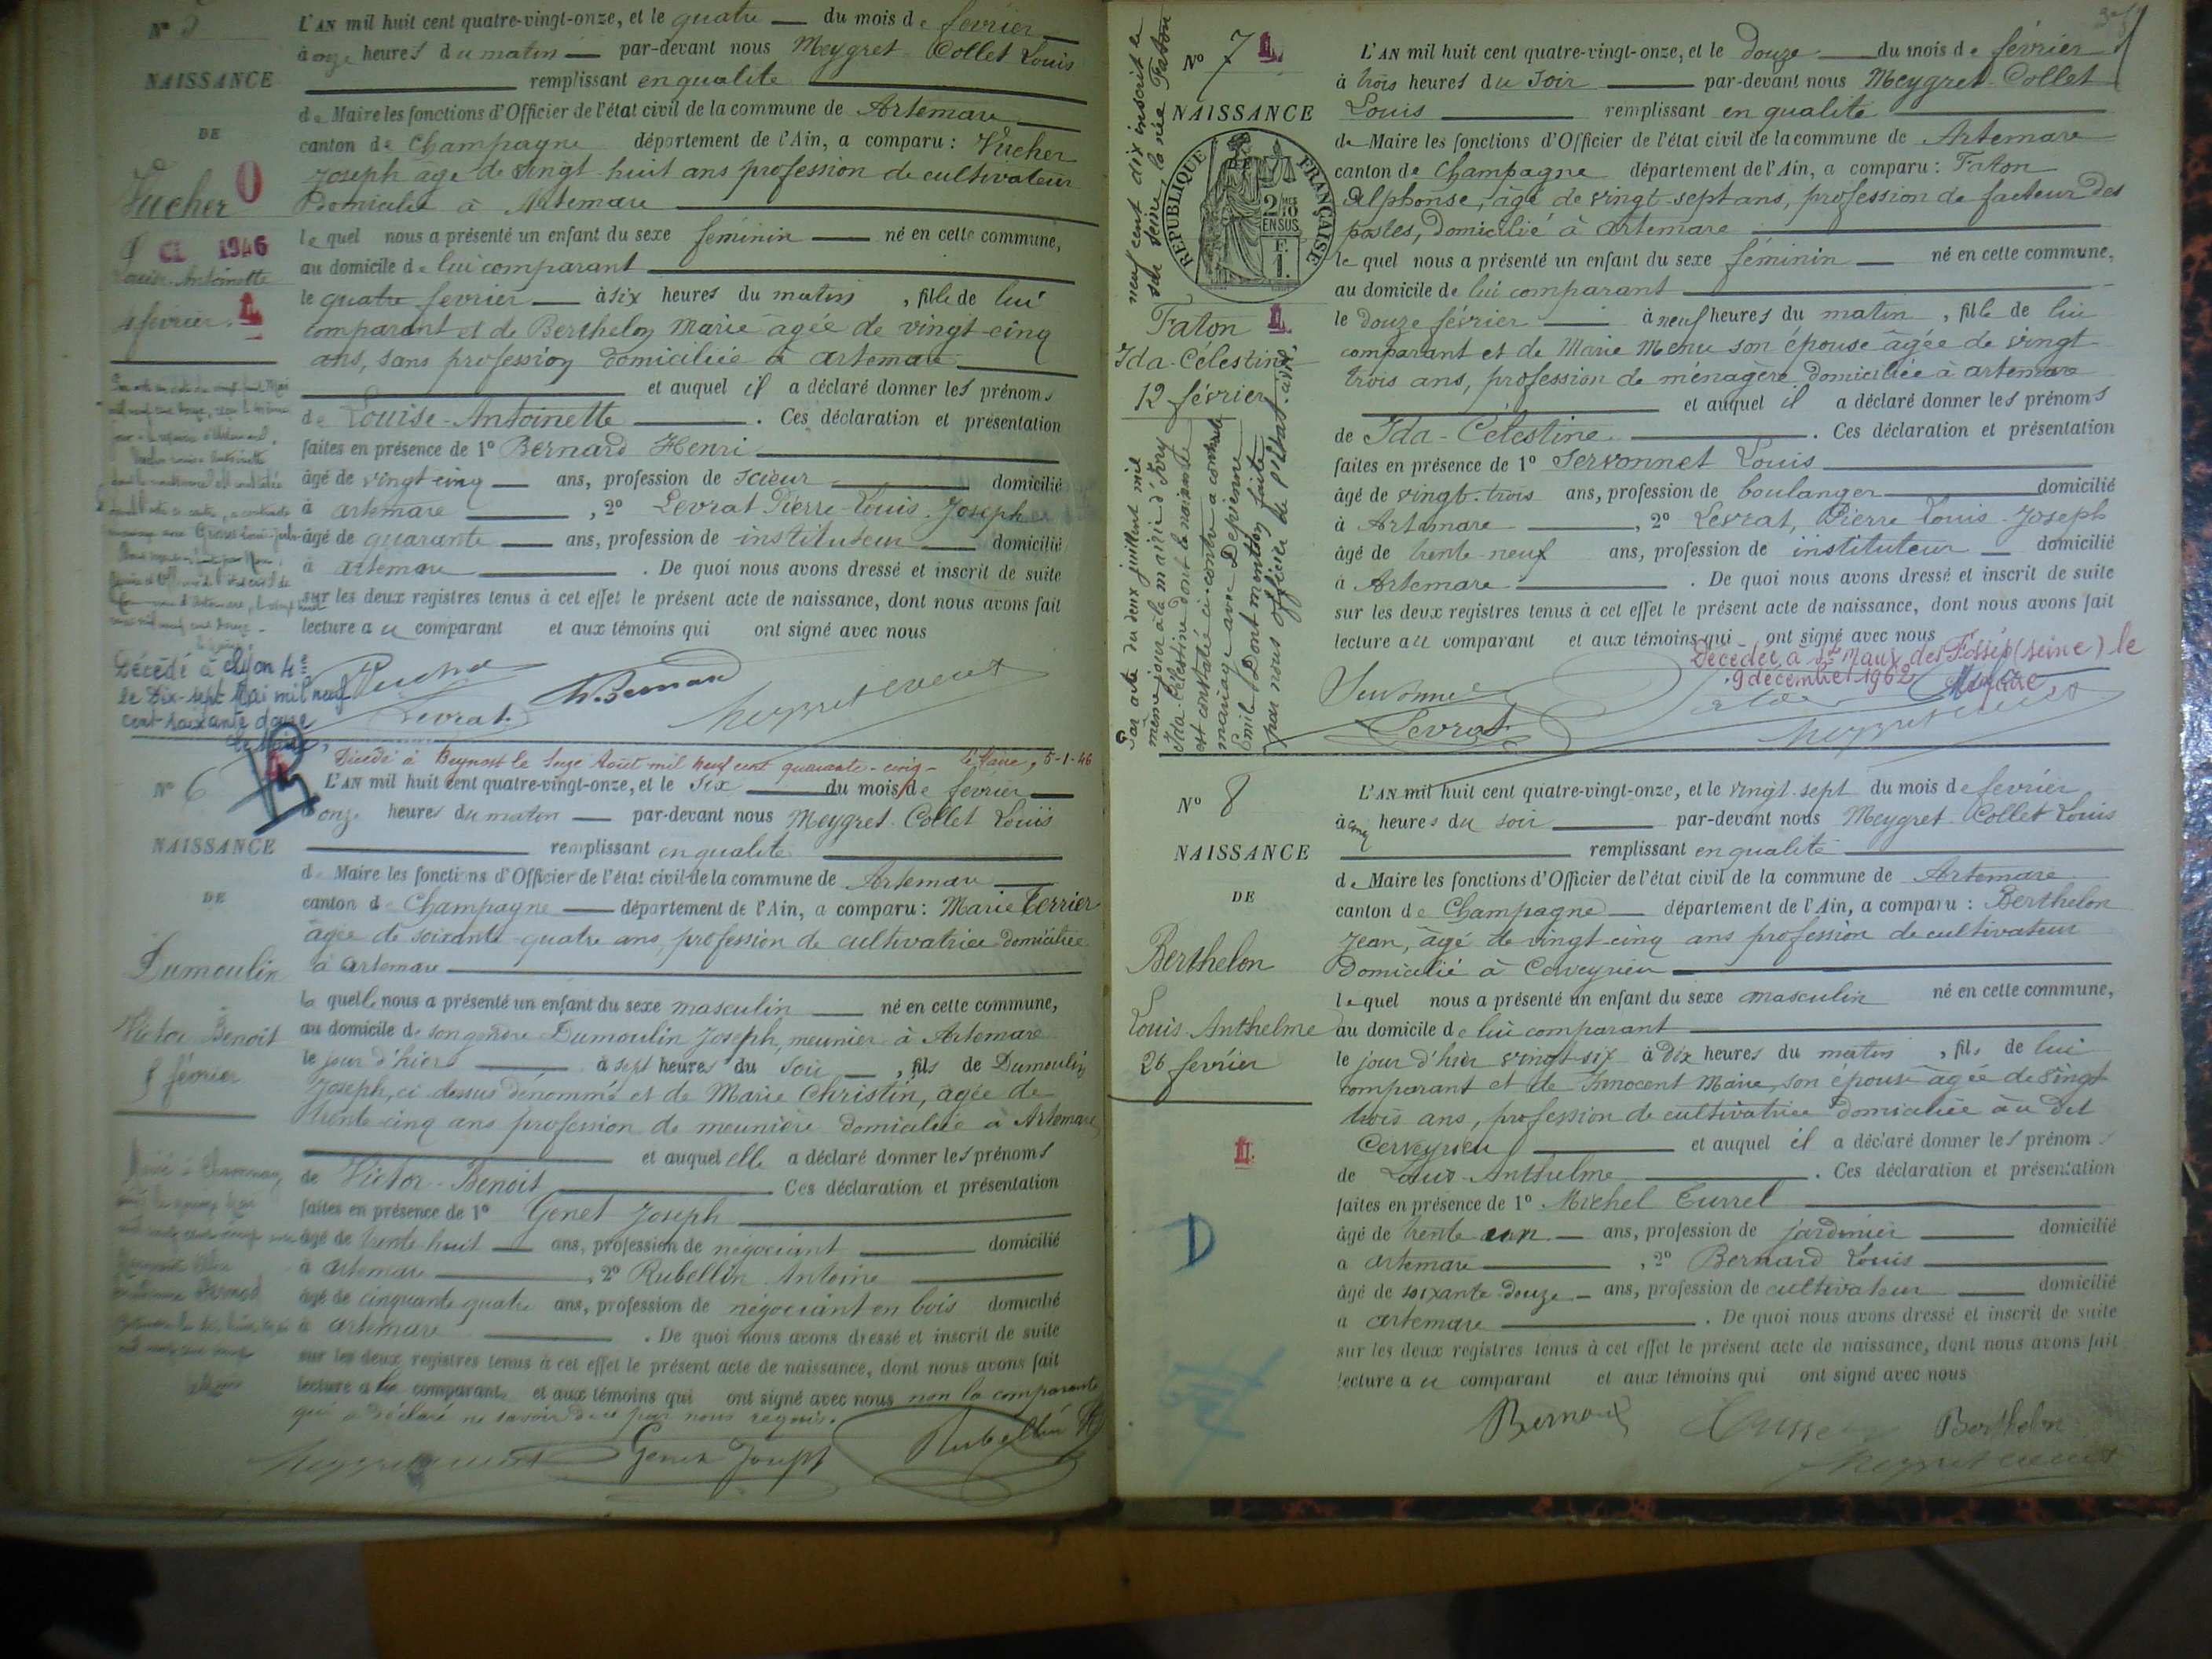 N° 5
NAISSANCE
DE
Vucher
O
CL 1946
Louise-Antoinette
4 février.
L'AN mil huit cent quatre-vingt-onze, et le quatre du mois de février
à onze heures du matin par-devant nous Meygret-Collet Louis
remplissant en qualité
de Maire les fonctions d'Officier de l'état civil de la commune de Artemare
canton de Champagne département de l'Ain, a comparu : Vucher
Joseph âgé de vingt-huit ans profession de cultivateur
Domicilié à Artemare
lequel nous a présenté un enfant du sexe féminin né en cette commune,
au domicile de lui comparant
le quatre février à six heures du matin, fille de lui
comparant et de Berthelon Marie âgée de vingt-cinq
ans, sans profession domiciliée à artemare
et auquel il a déclaré donner les prénoms
de Louise-Antoinette. Ces déclaration et présentation
faites en présence de 1° Bernard Henri
âgé de vingt-cinq ans, profession de scieur domicilié
à artemare, 2° Levrat Pierre-Louis-Joseph
âgé de quarante ans, profession de instituteur domicilié
à artemare. De quoi nous avons dressé et inscrit de suite
sur les deux registres tenus à cet effet le présent acte de naissance, dont nous avons fait
lecture au comparant et aux témoins qui ont signé avec nous
Décédé à Lyon 4e
le Dix-sept Mai mil neuf
cent-soixante douze
Le Maire,
Vucher
H. Bernard
Levrat
Décédé à Beynost le Seize Août mil neuf cent quarante-cinq - Le Maire, 5-1-46
N° 6
NAISSANCE
DE
Dumoulin
Victor Benoit
février
L'AN mil huit cent quatre-vingt-onze, et le six du mois de février
à onze heures du matin par-devant nous Meygret-Collet Louis
remplissant en qualité
de Maire les fonctions d'Officier de l'état civil de la commune de Artemare
canton de Champagne département de l'Ain, a comparu : Marie Terrier
âgée de soixante-quatre ans, profession de cultivatrice domiciliée
à artemare
laquelle nous a présenté un enfant du sexe masculin né en cette commune,
au domicile de son gendre Dumoulin Joseph, meunier à Artemare
le jour d'hier à sept heures du soir, fils de Dumoulin
Joseph, ci dessus dénommé et de Marie Christin, âgée de
trente-cinq ans profession de meunière domiciliée à Artemare
et auquel elle a déclaré donner les prénoms
de Victor-Benoit Ces déclaration et présentation
faites en présence de 1° Genet Joseph
âgé de trente-huit ans, profession de négociant domicilié
à artemare, 2° Rubellin Antoine
âgé de cinquante quatre ans, profession de négociant en bois domicilié
à artemare. De quoi nous avons dressé et inscrit de suite
sur les deux registres tenus à cet effet le présent acte de naissance, dont nous avons fait
lecture à la comparante et aux témoins qui ont signé avec nous non la comparante
qui a déclaré ne savoir de ce par nous requis.
Genet Joseph
Rubellin
N° 7
NAISSANCE
RÉPUBLIQUE FRANÇAISE
2/10ES
EN SUS
F.
1.
Faton
Ida-Célestine
12 février
Par acte du deux juillet mil
neuf cent dix inscrit le
même jour à la mairie d'Ivry
sur Seine, la née Faton
Ida-Célestine dont la naissance
est constatée ci-contre a contracté
mariage avec Depienne
Emile. Dont mention faite
par nous officier de l'état-civil,
L'AN mil huit cent quatre-vingt-onze, et le douze du mois de février
à trois heures du soir par-devant nous Meygret-Collet
Louis remplissant en qualité
de Maire les fonctions d'Officier de l'état civil de la commune de Artemare
canton de Champagne département de l'Ain, a comparu : Faton
Alphonse, âgé de vingt-sept ans, profession de facteur des
postes, domicilié à artemare
lequel nous a présenté un enfant du sexe féminin né en cette commune,
au domicile de lui comparant
le douze février à neuf heures du matin, fille de lui
comparant et de Marie Menu son épouse âgée de vingt
trois ans, profession de ménagère domiciliée à artemare
et auquel il a déclaré donner les prénoms
de Ida-Célestine. Ces déclaration et présentation
faites en présence de 1° Servonnet Louis
âgé de vingt-trois ans, profession de boulanger domicilié
à Artemare, 2° Levrat, Pierre Louis-Joseph
âgé de trente-neuf ans, profession de instituteur domicilié
à Artemare. De quoi nous avons dressé et inscrit de suite
sur les deux registres tenus à cet effet le présent acte de naissance, dont nous avons fait
lecture au comparant et aux témoins qui ont signé avec nous
Décédée à St Maur des Fossés (Seine) le
9 décembre 1962
Servonnet
Levrat
N° 8
NAISSANCE
DE
Berthelon
Louis-Anthelme
26 février
D
L'AN mil huit cent quatre-vingt-onze, et le vingt-sept du mois de février
à cinq heures du soir par-devant nous Meygret-Collet Louis
remplissant en qualité
de Maire les fonctions d'Officier de l'état civil de la commune de Artemare
canton de Champagne département de l'Ain, a comparu : Berthelon
Jean, âgé de vingt-cinq ans profession de cultivateur
Domicilié à Cerveyrieu
lequel nous a présenté un enfant du sexe masculin né en cette commune,
au domicile de lui comparant
le jour d'hier vingt-six à dix heures du matin, fils de lui
comparant et de Innocent Marie, son épouse âgée de vingt
trois ans, profession de cultivatrice domiciliée au dit
Cerveyrieu et auquel il a déclaré donner les prénoms
de Louis-Anthelme. Ces déclaration et présentation
faites en présence de 1° Michel Currel
âgé de trente un ans, profession de jardinier domicilié
à artemare, 2° Bernard Louis
âgé de soixante-douze ans, profession de cultivateur domicilié
à artemare. De quoi nous avons dressé et inscrit de suite
sur les deux registres tenus à cet effet le présent acte de naissance, dont nous avons fait
lecture au comparant et aux témoins qui ont signé avec nous
Bernard
Berthelon